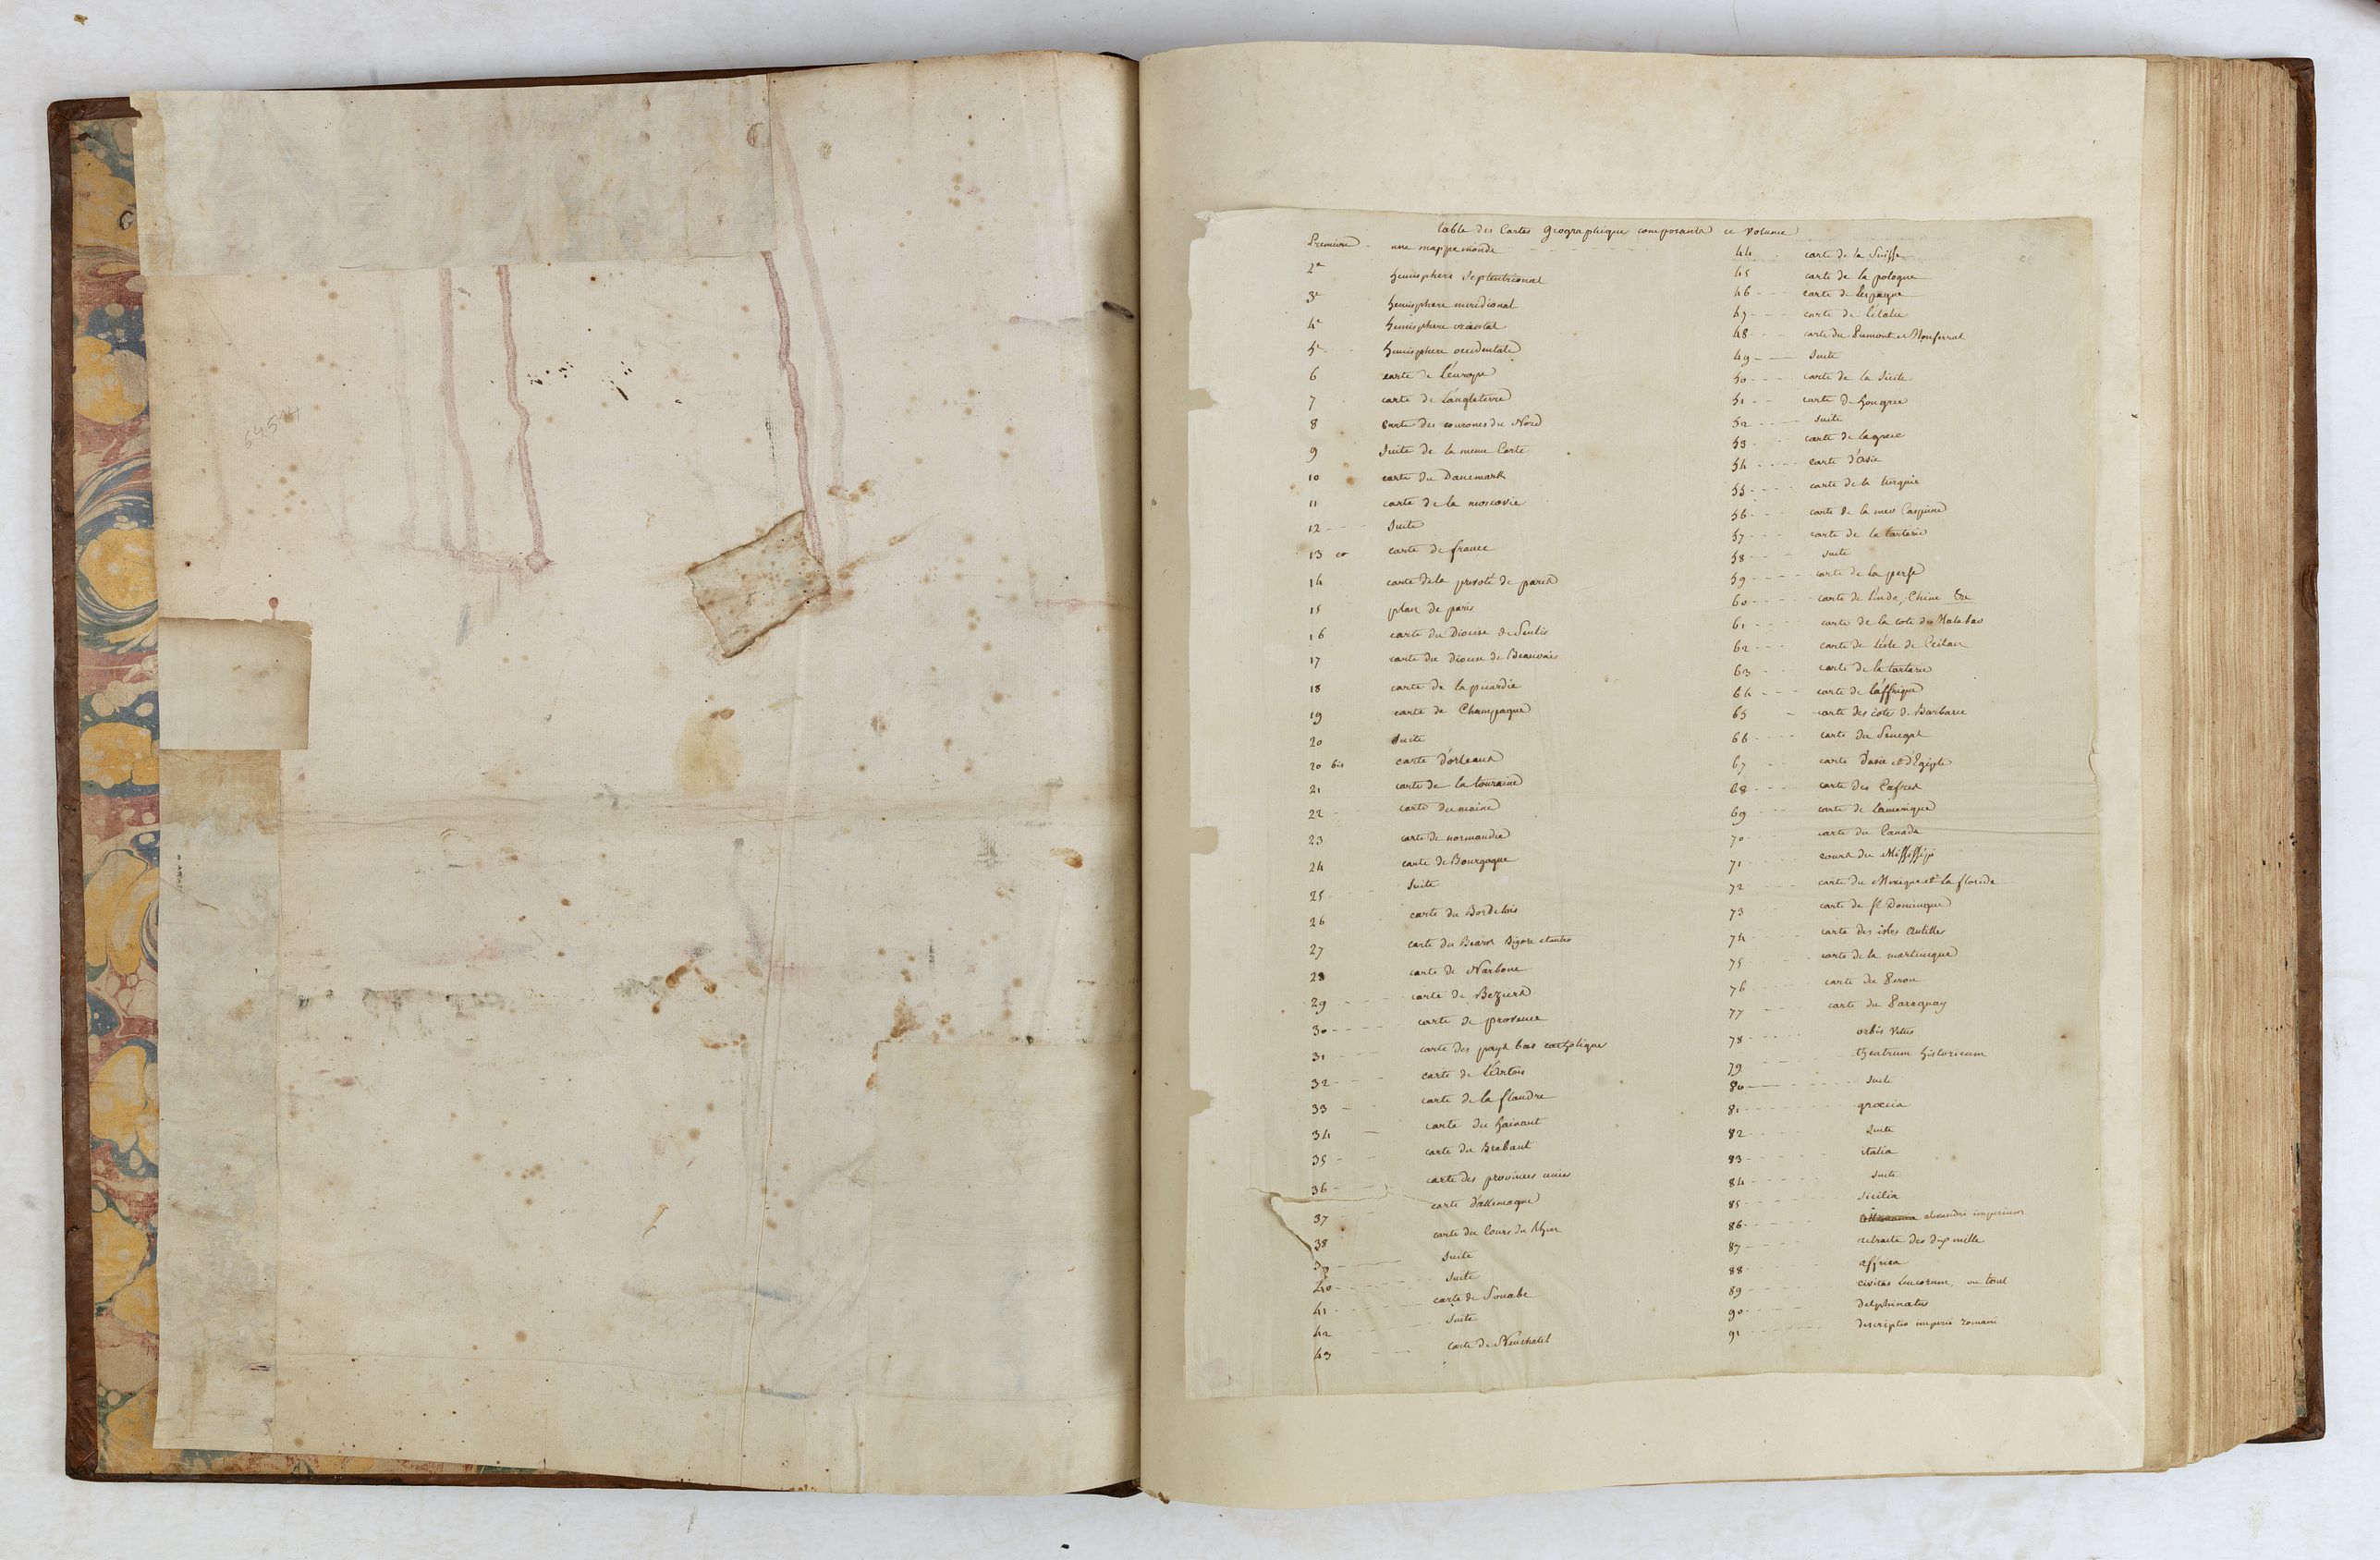 64544
table des Cartes Geographique composants ce Volume
Premiere une mappe monde
2e hemisphere septentrional
3e hemisphere meridional
4e hemisphere oriental
5e hemisphere occidentale
6 carte de L'europe
7 carte de L'angleterre
8 Carte des couronnes du Nord
9 Suite de la meme Carte
10 carte du Danemark
11 carte de la moscovie
12 Suite
13 carte de france
14 carte de la prevoté de paris
15 plan de paris
16 carte du Diocese de Senlis
17 carte du diocese de Beauvais
18 carte de la picardie
19 carte de Champagne
20 Suite
20 bis carte d'orleans
21 carte de la touraine
22 carte du maine
23 carte de normandie
24 carte de Bourgogne
25 Suite
26 carte du Bordelois
27 carte du Bearn Bigore et autres
28 carte de Narbone
29 carte de Beziers
30 carte de provence
31 carte des pays bas catholique
32 carte de L'Artois
33 carte de la flandre
34 carte du hainaut
35 carte du Brabant
36 carte des provinces unies
37 carte d'allemagne
38 carte du Cours du Rhin
39 Suite
40 Suite
41 carte de Souabe
42 Suite
43 carte de Neuchatel
44 carte de la Suisse
45 carte de la pologne
46 carte de lespagne
47 carte de litalie
48 carte du Piemont et Monferrat
49 Suite
50 carte de la Sicile
51 carte de hongrie
52 Suite
53 carte de la grece
54 carte d'asie
55 carte de la turquie
56 carte de la mer Caspiene
57 carte de la tartarie
58 Suite
59 carte de la perse
60 carte de l'inde, Chine &a
61 carte de la cote du Malabar
62 carte de l'isle de Ceilan
63 carte de la tartarie
64 carte de l'affrique
65 carte des cotes de Barbarie
66 carte du Senegal
67 carte d'asie et d'Egipte
68 carte des Cafres
69 carte de L'amerique
70 carte du Canada
71 cours du Mississipi
72 carte du Mexique et la floride
73 carte de st Domingue
74 carte des isles Antilles
75 carte de la martinique
76 carte du Perou
77 carte du Paraguay
78 orbis vetus
79 theatrum historicum
80 Suite
81 græcia
82 Suite
83 italia
84 Suite
85 Sicilia
86 alexandri imperium
87 retraite des dix mille
88 affrica
89 civitas Leucorum, ou toul
90 delphinatus
91 descriptio imperii romani